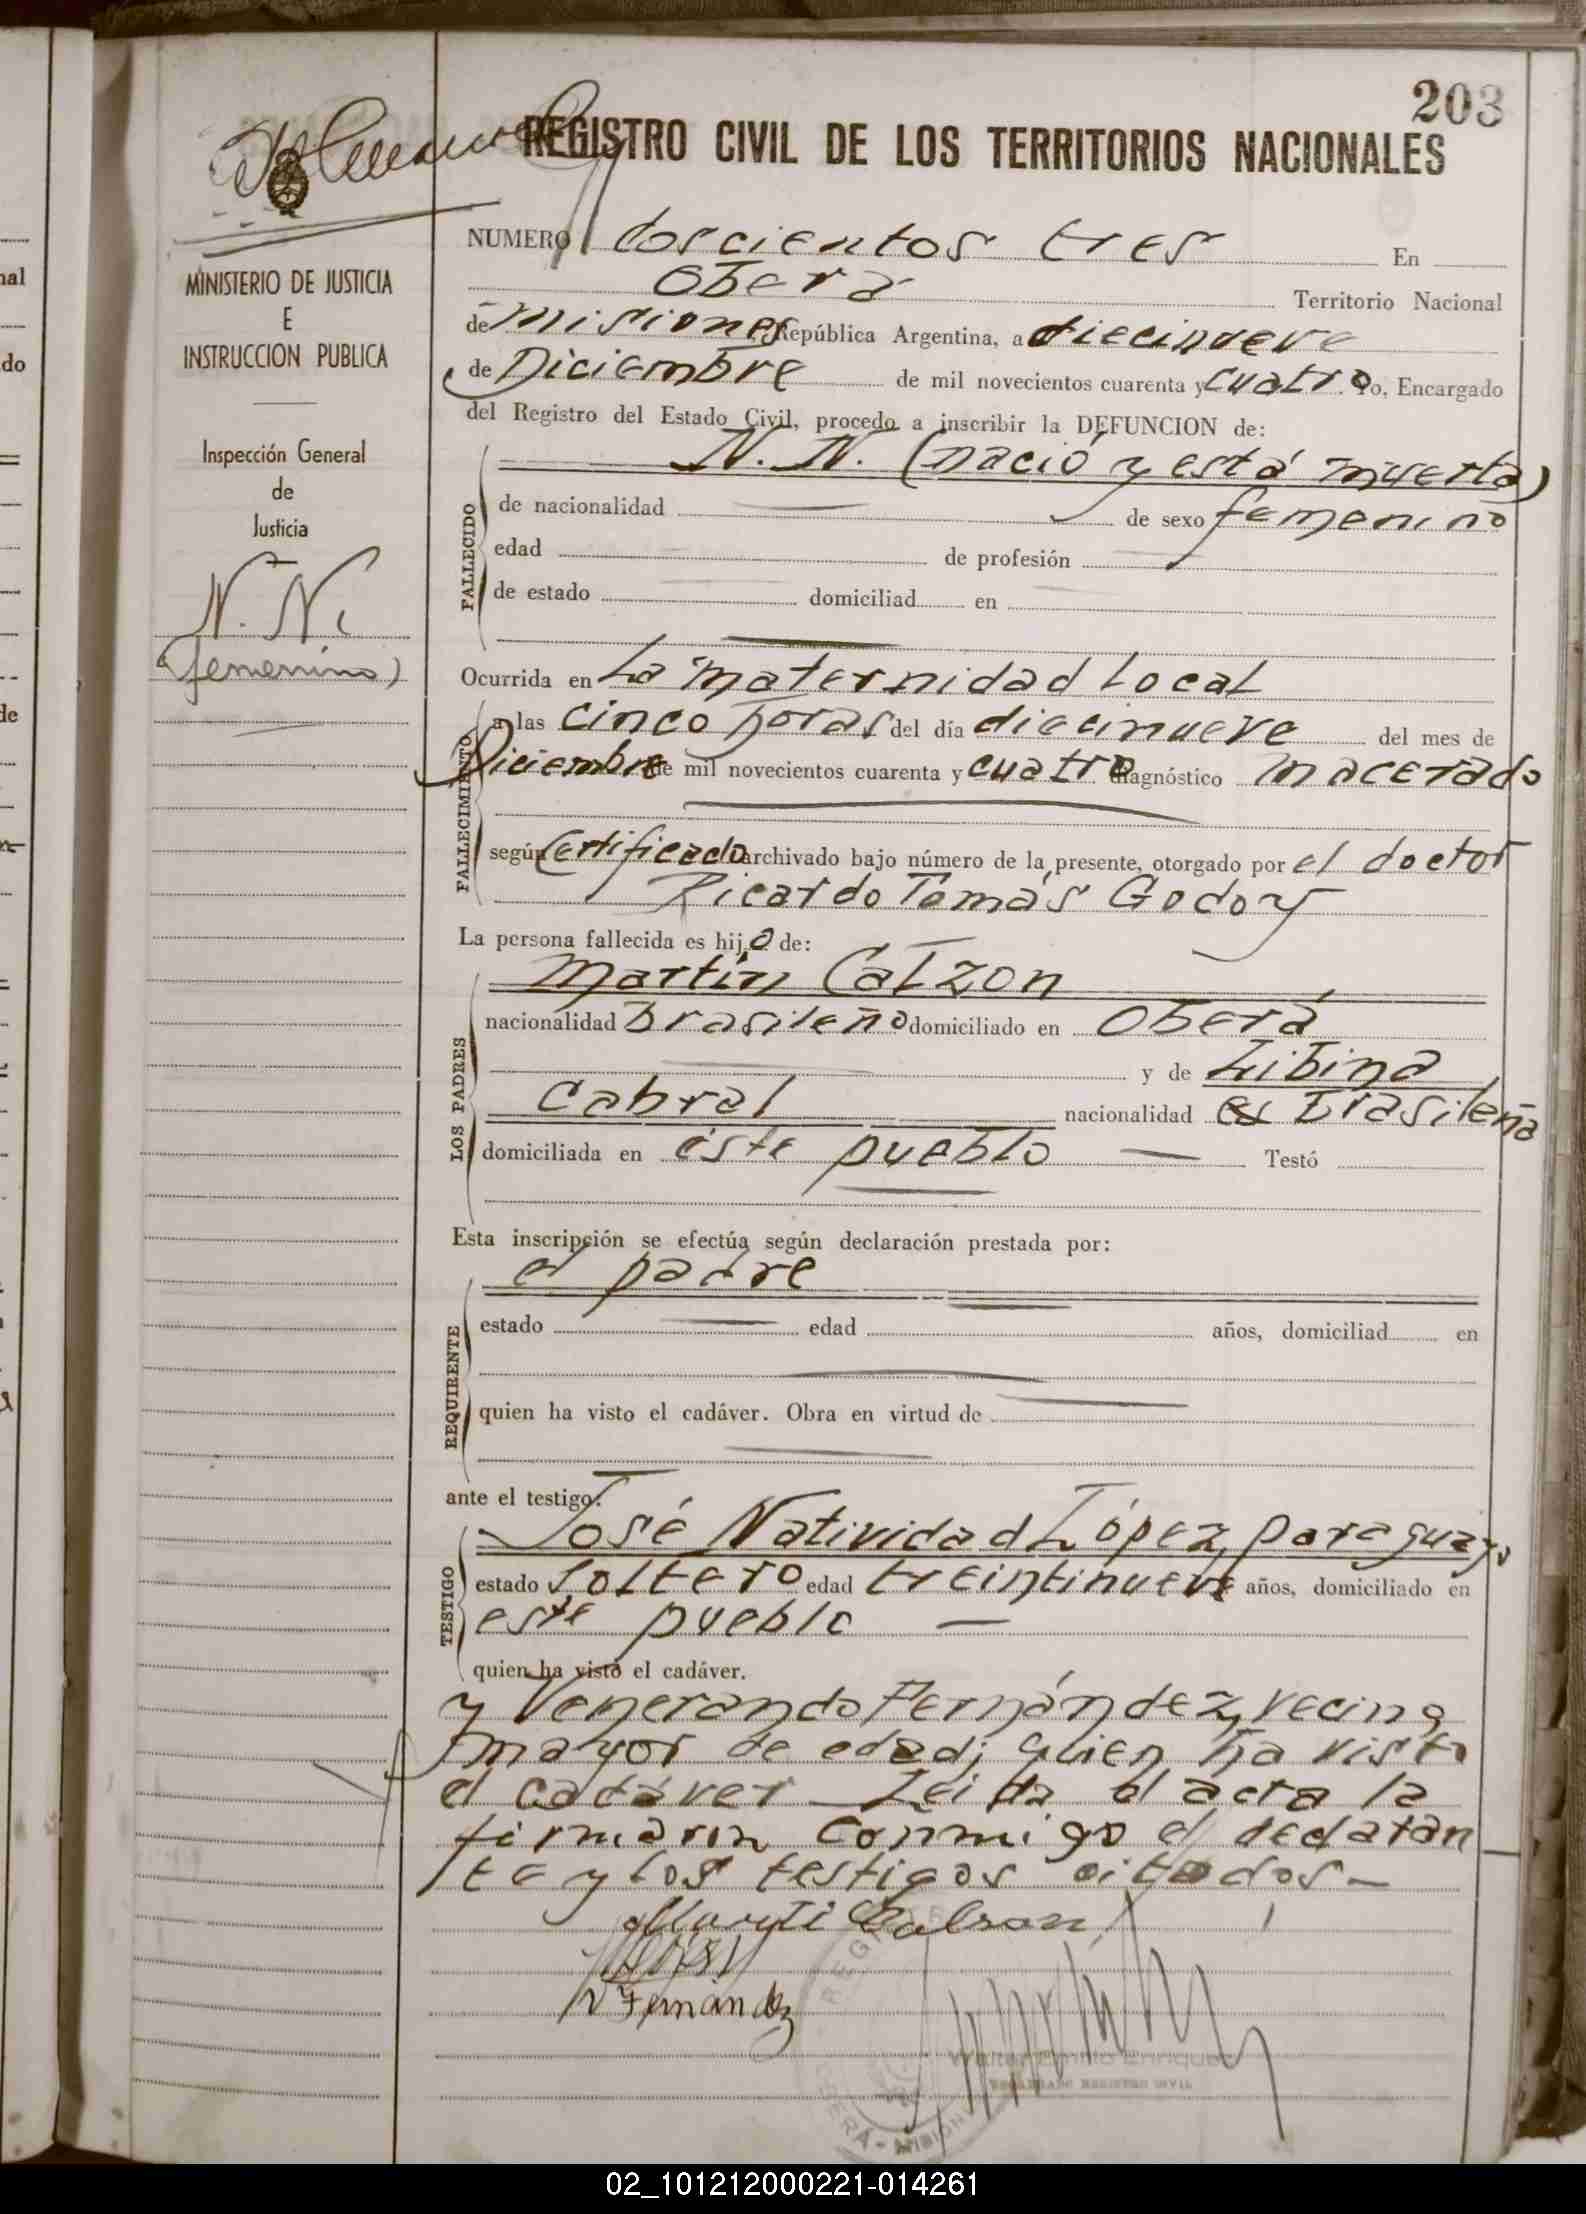 203
REGISTRO CIVIL DE LOS TERRITORIOS NACIONALES
MINISTERIO DE JUSTICIA
E
INSTRUCCION PUBLICA
Inspección General
de
Justicia
N. N.
(femenino)
NUMERO doscientos tres En
Oberá Territorio Nacional
de Misiones República Argentina, a diecinueve
de Diciembre de mil novecientos cuarenta y cuatro. Yo, Encargado
del Registro del Estado Civil, procedo a inscribir la DEFUNCION de:
N. N. (nació y está muerta)
FALLECIDO
de nacionalidad de sexo femenino
edad de profesión
de estado domiciliad en
Ocurrida en La maternidad local
FALLECIMIENTO
a las cinco horas del día diecinueve del mes de
Diciembre de mil novecientos cuarenta y cuatro diagnóstico macerado
según Certificado archivado bajo número de la presente, otorgado por el doctor
Ricardo Tomás Godoy
La persona fallecida es hija de:
LOS PADRES
Martín Calzon
nacionalidad brasileño domiciliado en Oberá
y de Libina
Cabral nacionalidad es brasileña
domiciliada en éste pueblo Testó
Esta inscripción se efectúa según declaración prestada por:
REQUIRENTE
el padre
estado edad años, domiciliad en
quien ha visto el cadáver. Obra en virtud de
ante el testigo:
TESTIGO
José Natividad López, paraguayo
estado soltero edad treintinueve años, domiciliado en
este pueblo
quien ha visto el cadáver.
y Venerando Fernández, vecino
mayor de edad; quien ha visto
el cadáver Leida el acta la
firmaron conmigo el declaran
te y los testigos citados
V Fernández
Walter Emilio Enriquez
ENCARGADO REGISTRO CIVIL
02_101212000221-014261